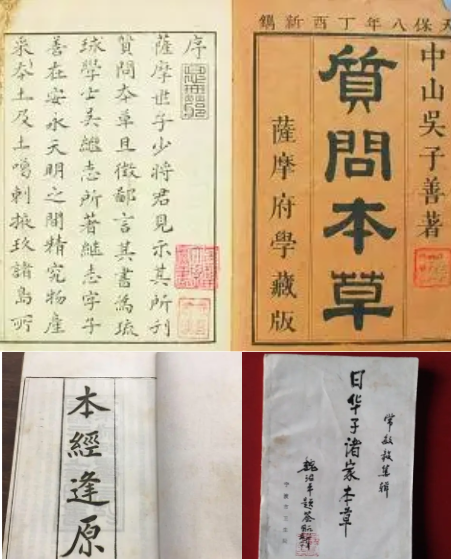 天保八年丁酉新鐫
中山吳子善著
質問本草
薩摩府學藏版
序
薩摩世子少將君見示其所刊
質問本草且徵鄙言其書為琉
球學士吳繼志所著繼志字子
善在安永天明之間精究物產
采本土及土噶剌掖玖諸島所
本經逢原
常敏毅集辑
日华子诸家本草
魏治平题签